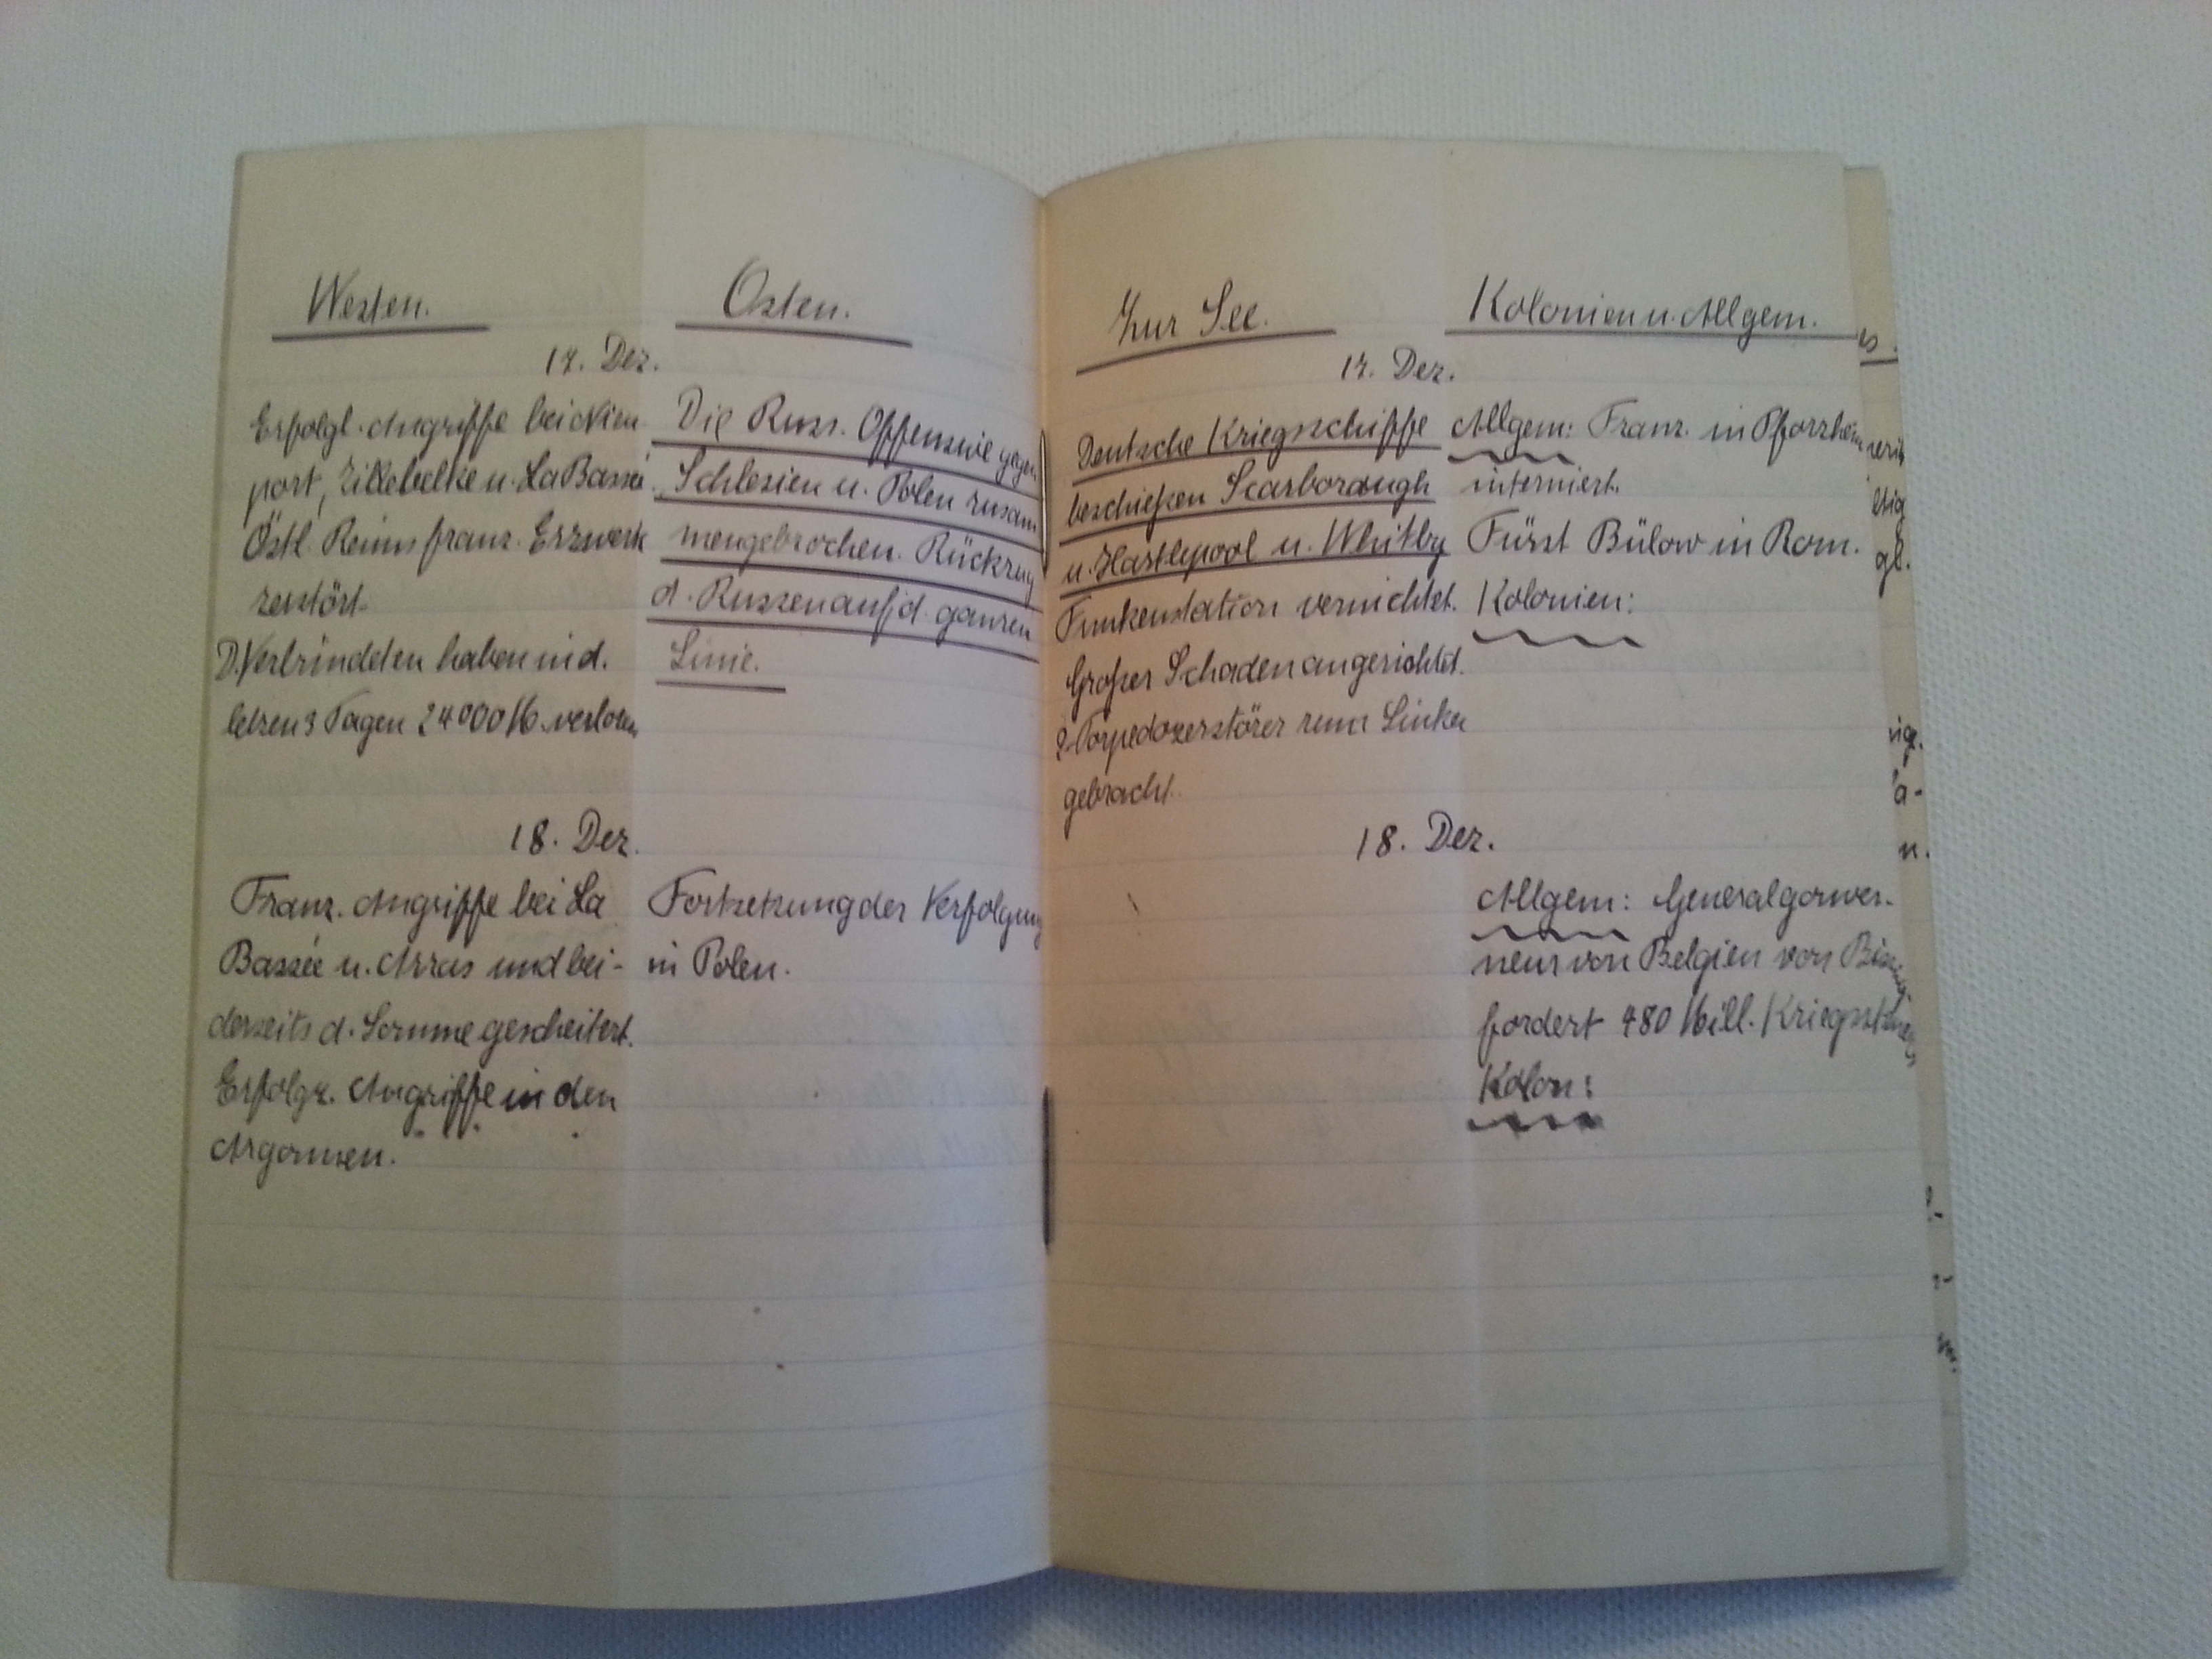 Westen.
17. Dez.
Erfolgl. Angriffe bei Nieu
port, Zillebelke u. La Bassée.
Östl. Reims franz. Erzwerk
zerstört.
D. Verbündeten haben in d.
letzen 3 Tagen 24000 M. verloren
18. Dez.
Franz. Angriffe bei La
Bassée u. Arras und bei-
derseits d. Somme gescheitert.
Erfolgr. Angriffe in den
Argonnen.
Osten.
Die Russ. Offensive gegen
Schlesien u. Polen zusam
mengebrochen. Rückzug
d. Russen auf d. ganzen
Linie.
Fortsetzung der Verfolgung
in Polen.
Zur See.
17. Dez.
Deutsche Kriegsschiffe
beschießen Scarborough
u. Hartlepool u. Whitby
Funkenstation vernichtet.
Großer Schaden angerichtet.
2 Torpedozerstörer zum Sinken
gebracht.
18. Dez.
Kolonien u. Allgem.
Allgem: Franz. in Pforzheim
interniert.
Fürst Bülow in Rom.
Kolonien:
Allgem: Generalgouver-
neur von Belgien von Bissing
fordert 480 Mill. Kriegssteuer
Kolon: